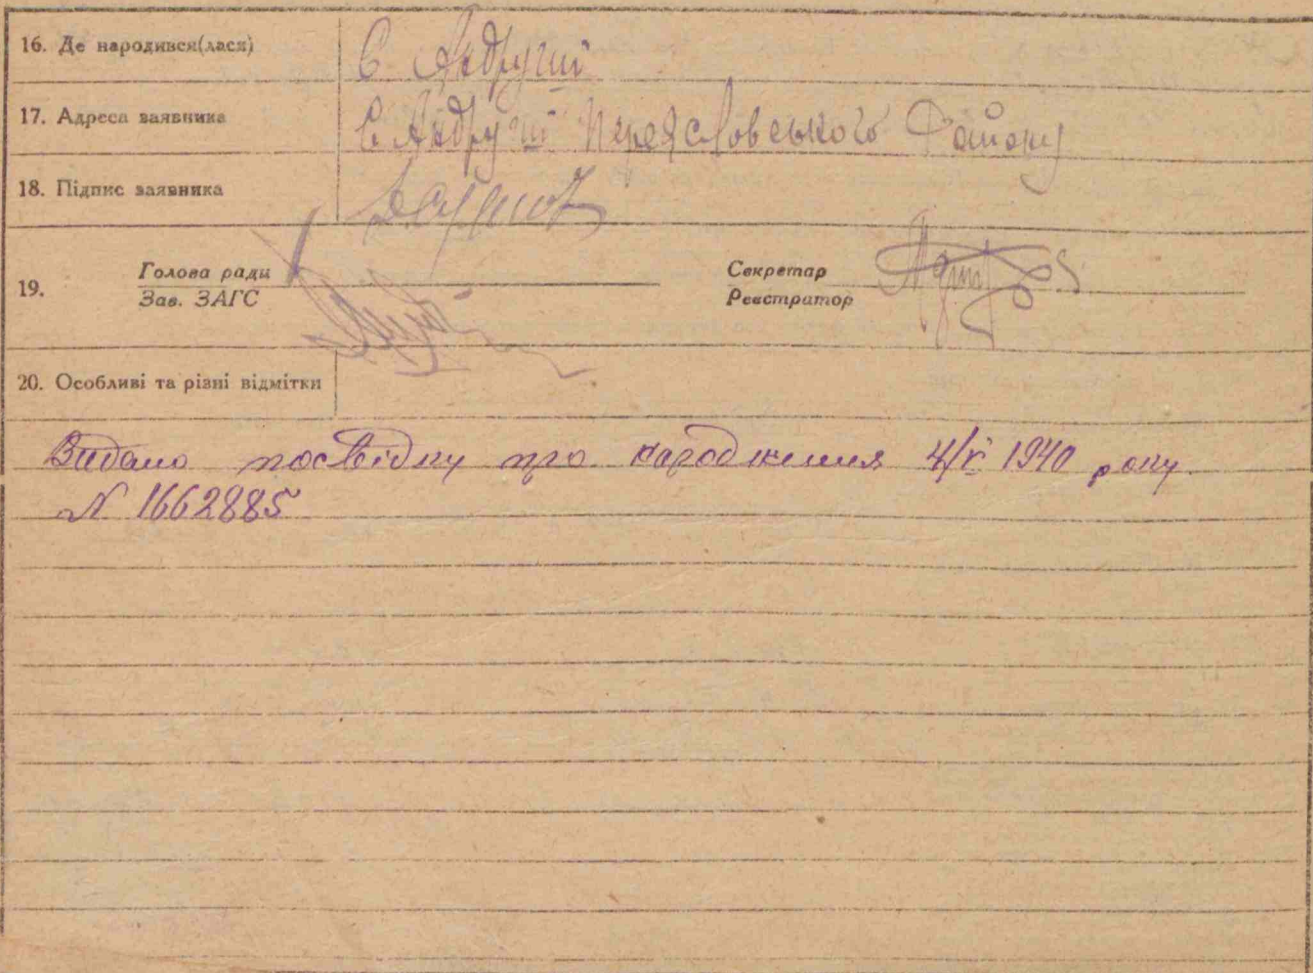 16. Де народився(лася) С. Андруші
17. Адреса заявника С. Андруші Переясловського Району
18. Підпис заявника
Голова ради Секретар
19.
Зав. ЗАГС Реєстратор
20. Особливі та різні відмітки
Видано посвідку про народження 4/V 1940 року.
N 1662885